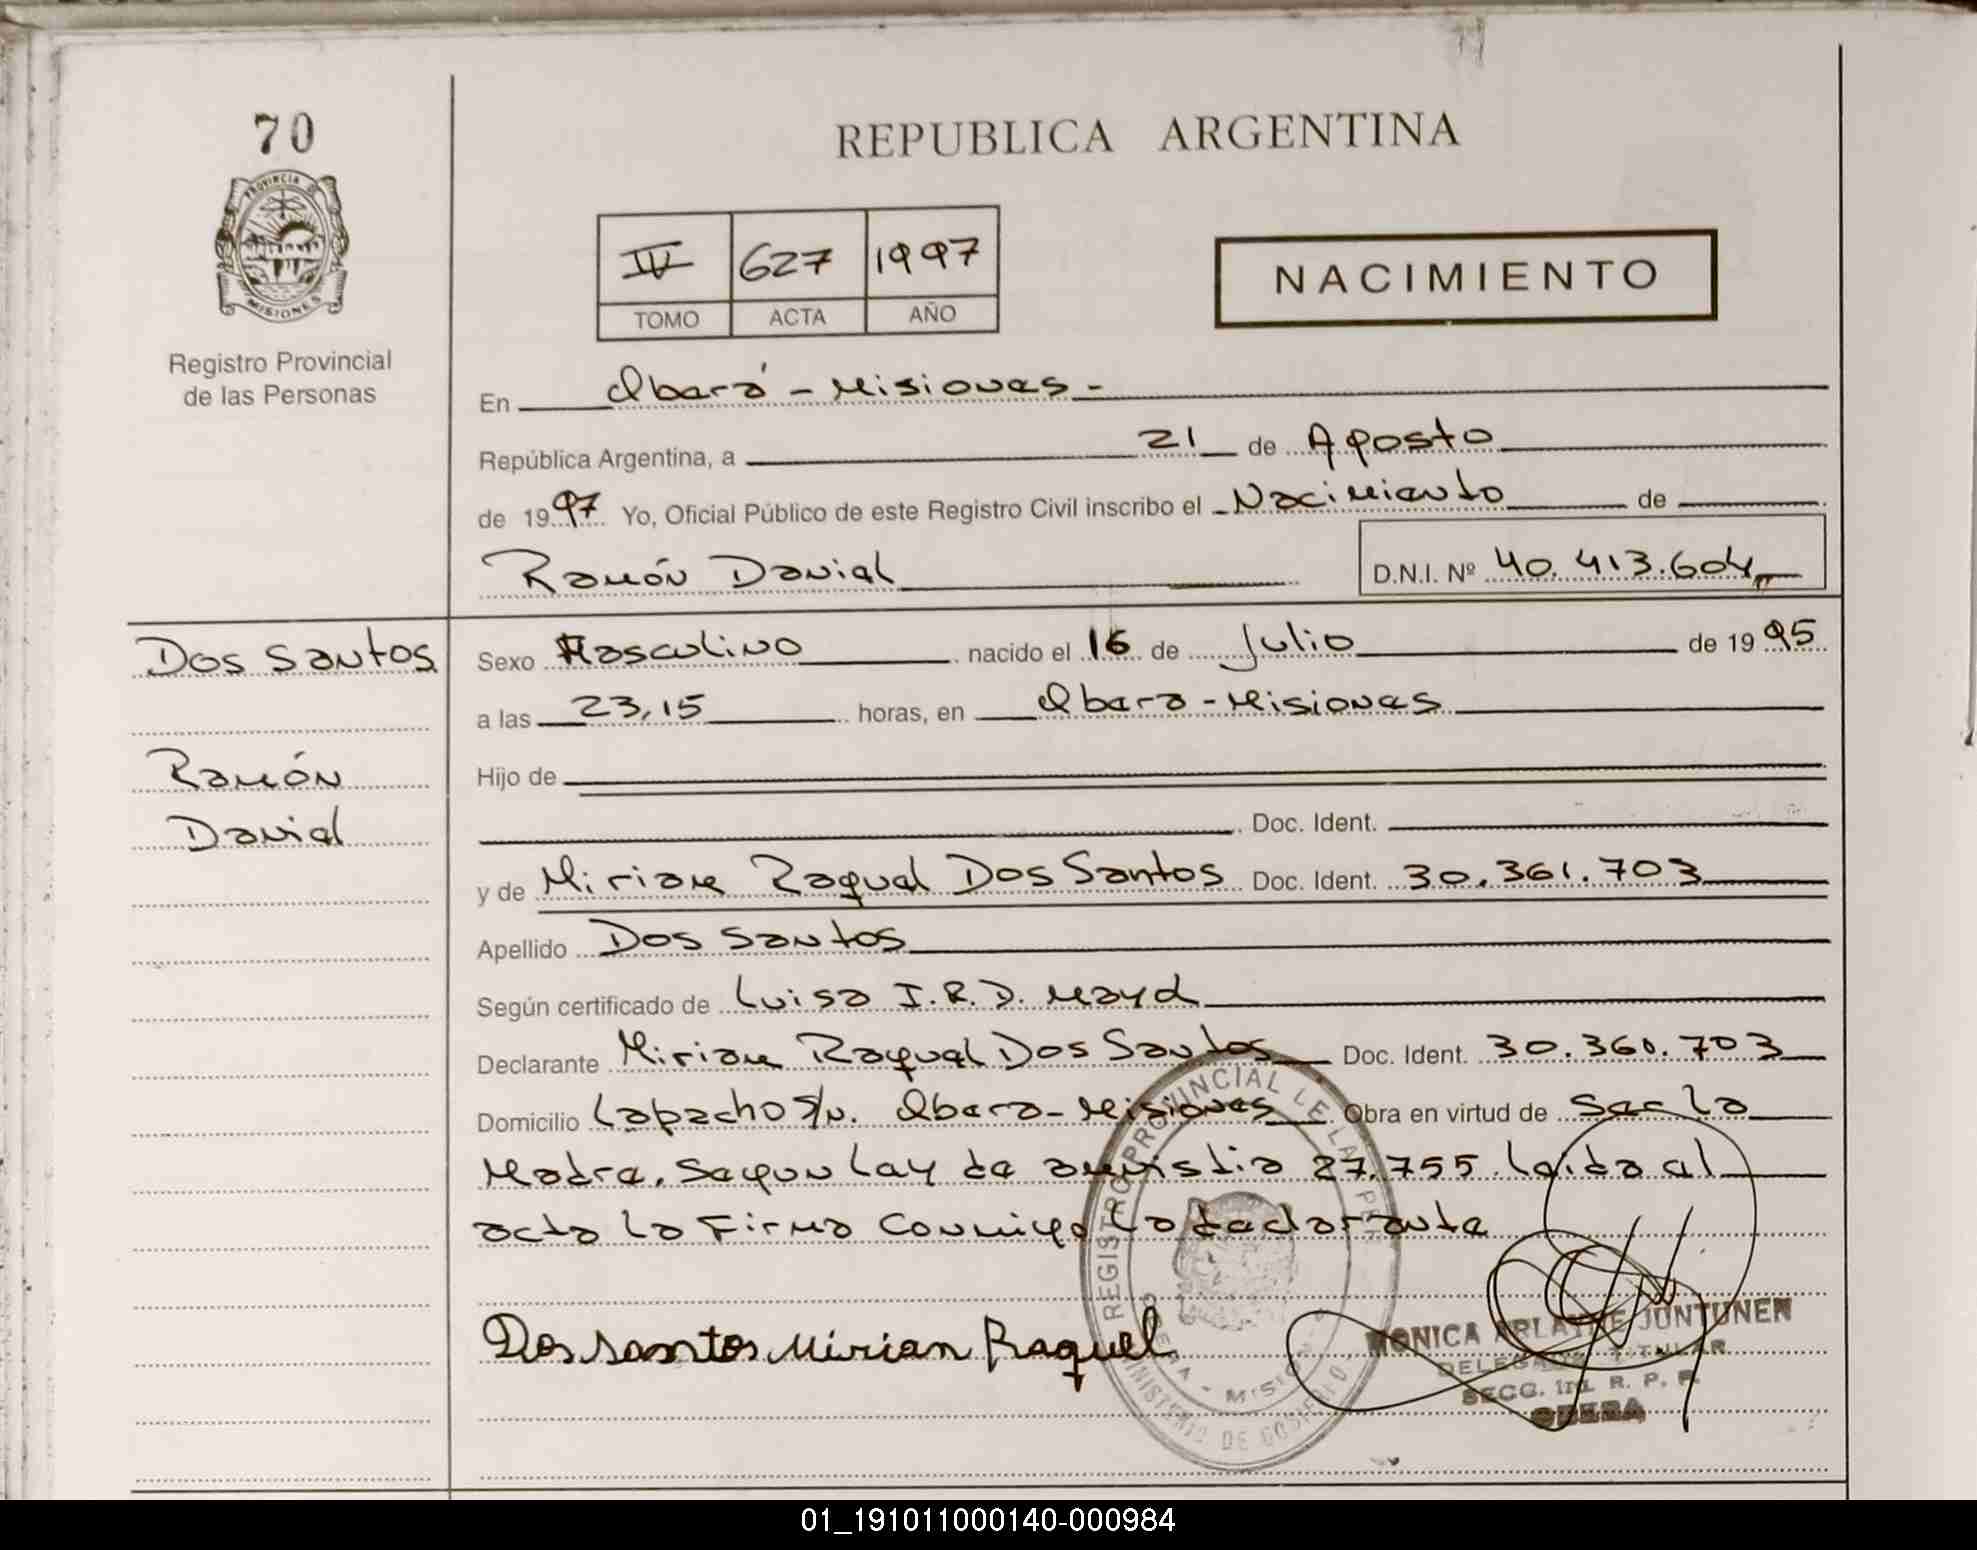 70
REPUBLICA ARGENTINA
PROVINCIA DE
MISIONES
IV 627 1997
TOMO ACTA AÑO
NACIMIENTO
Registro Provincial
de las Personas
En Oberá - Misiones -
República Argentina, a 21 de Agosto
de 1997 Yo, Oficial Público de este Registro Civil inscribo el Nacimiento de
Ramón Daniel D.N.I. Nº 40.413.604
Dos Santos
Sexo Masculino nacido el 16 de Julio de 1995
a las 23,15 horas, en Obera - Misiones
Ramón
Daniel
Hijo de
Doc. Ident.
y de Miriam Raquel Dos Santos Doc. Ident. 30.361.703
Apellido Dos Santos
Según certificado de Luisa I.R.D. Mayel
Declarante Miriam Raquel Dos Santos Doc. Ident. 30.360.703
Domicilio Lapacho s/n. Obera - Misiones Obra en virtud de Ser la
Madre. Segun Ley de amnistia 27.755. Leida el
acta la Firma Conmigo la declarante
Dos santos Mirian Raquel
REGISTRO PROVINCIAL DE LAS PER
OBERA - MISIONES
MINISTERIO DE GOBIERNO
MONICA ARLAYNE JUNTUNEN
DELEGADA TITULAR
SECC. 1ra. R. P. P.
OBERA
01_191011000140-000984